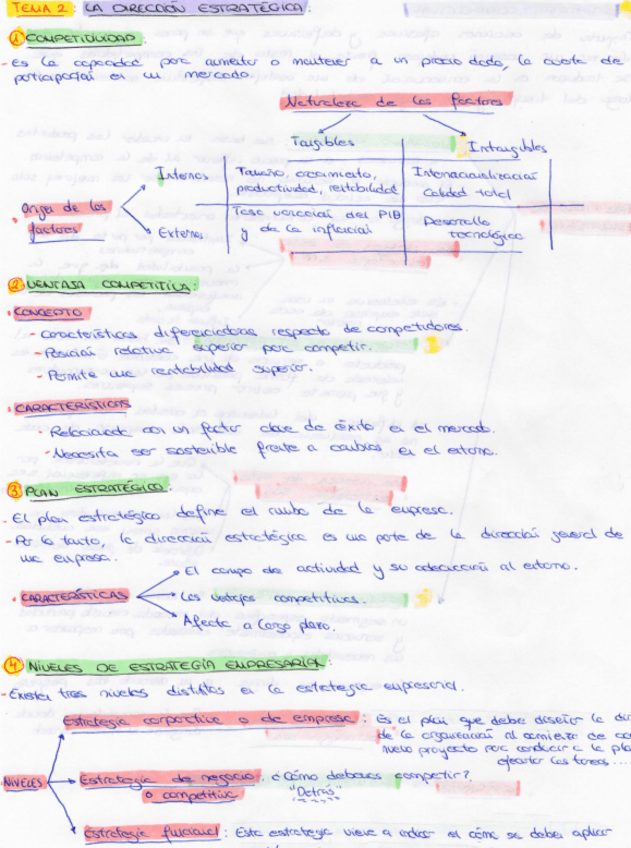 TEMA 2: LA DIRECCIÓN ESTRATÉGICA:
① COMPETITIVIDAD:
- Es la capacidad para aumentar o mantener a un precio dado, la cuota de
participación en un mercado.
Naturaleza de los factores
Tangibles Intangibles
Internos Tamaño, crecimiento, Internacionalización
productividad, rentabilidad Calidad total
Origen de los factores
Externos Tasa variación del PIB Desarrollo
y de la inflación tecnológico
② VENTAJA COMPETITIVA:
· CONCEPTO
- Características diferenciadoras respecto de competidores.
- Posición relativa superior para competir.
- Permite una rentabilidad superior.
· CARACTERÍSTICAS
- Relacionada con un factor clave de éxito en el mercado.
- Necesita ser sostenible frente a cambios en el entorno.
③ PLAN ESTRATÉGICO:
- El plan estratégico define el rumbo de la empresa.
- Por lo tanto, la dirección estratégica es una parte de la dirección general de
una empresa.
El campo de actividad y su adecuación al entorno.
· CARACTERÍSTICAS Las ventajas competitivas.
Afecta a largo plazo.
④ NIVELES DE ESTRATEGIA EMPRESARIAL:
- Existen tres niveles distintos en la estrategia empresarial.
Estrategia corporativa o de empresa: Es el plan que debe diseñar la
de la organización al comienzo de
nuevo proyecto para conducir a la
efectuar las tareas...
NIVELES Estrategia de negocio ¿Cómo debemos competir?
o competitiva "Detrás"
Estrategia funcional: Esta estrategia viene a indicar el cómo se debe aplicar